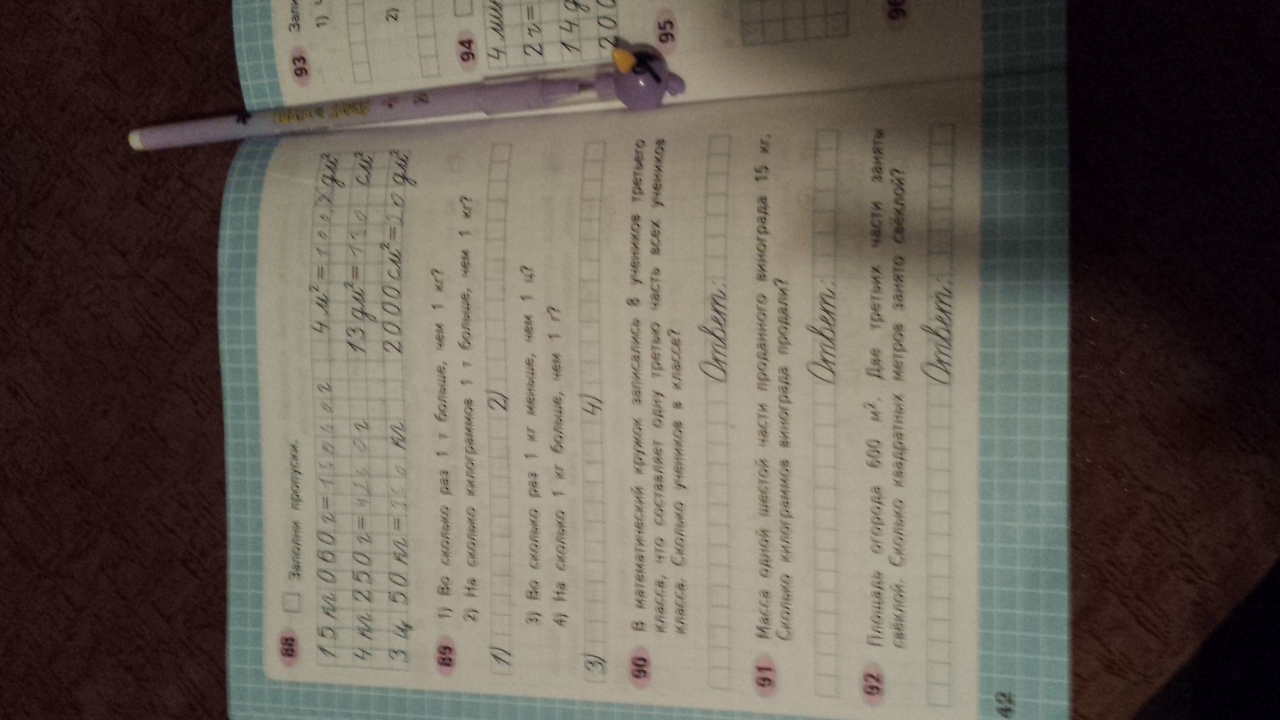 88 Заполни пропуски.
15 кг 060 г = 15060 г 4 м² = 100 дм²
4 кг 250 г = 4250 г 13 дм² = 130 см²
3 ц 50 кг = 350 кг 2000 см² = 20 дм²
89 1) Во сколько раз 1 т больше, чем 1 кг?
2) На сколько килограммов 1 т больше, чем 1 кг?
1) 2)
3) Во сколько раз 1 кг меньше, чем 1 ц?
4) На сколько 1 кг больше, чем 1 г?
3) 4)
90 В математический кружок записались 8 учеников третьего
класса, что составляет одну третью часть всех учеников
класса. Сколько учеников в классе?
Ответ:
91 Масса одной шестой части проданного винограда 15 кг.
Сколько килограммов винограда продали?
Ответ:
92 Площадь огорода 600 м². Две третьих части заняты
свёклой. Сколько квадратных метров занято свёклой?
Ответ:
42
93
1)
2)
94
4 мин
2 г =
14 д
200
95
96